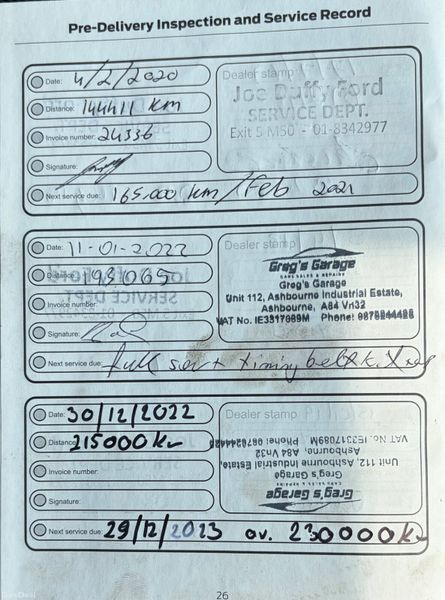 Pre-Delivery Inspection and Service Record
Date: 4/2/2020
Distance: 144411 km
Invoice number: 24336
Signature:
Next service due: 165.000 km / Feb 2021
Dealer stamp
Joe Duffy Ford
SERVICE DEPT.
Exit 5 M50 - 01-8342977
Date: 11-01-2022
Distance: 198065
Invoice number:
Signature:
Next service due: full ser + timing belt k.
Dealer stamp
Greg's Garage
CARS SALES & REPAIRS
Greg's Garage
Unit 112, Ashbourne Industrial Estate,
Ashbourne, A84 Vn32
VAT No. IE3317089M Phone: 0876244426
Date: 30/12/2022
Distance: 215000 km
Invoice number:
Signature:
Next service due: 29/12/2023 ov. 230000 km
Dealer stamp
Greg's Garage
Greg's Garage
Unit 112, Ashbourne Industrial Estate,
Ashbourne, A84 Vn32
VAT No. IE3317089M Phone: 0876244426
26